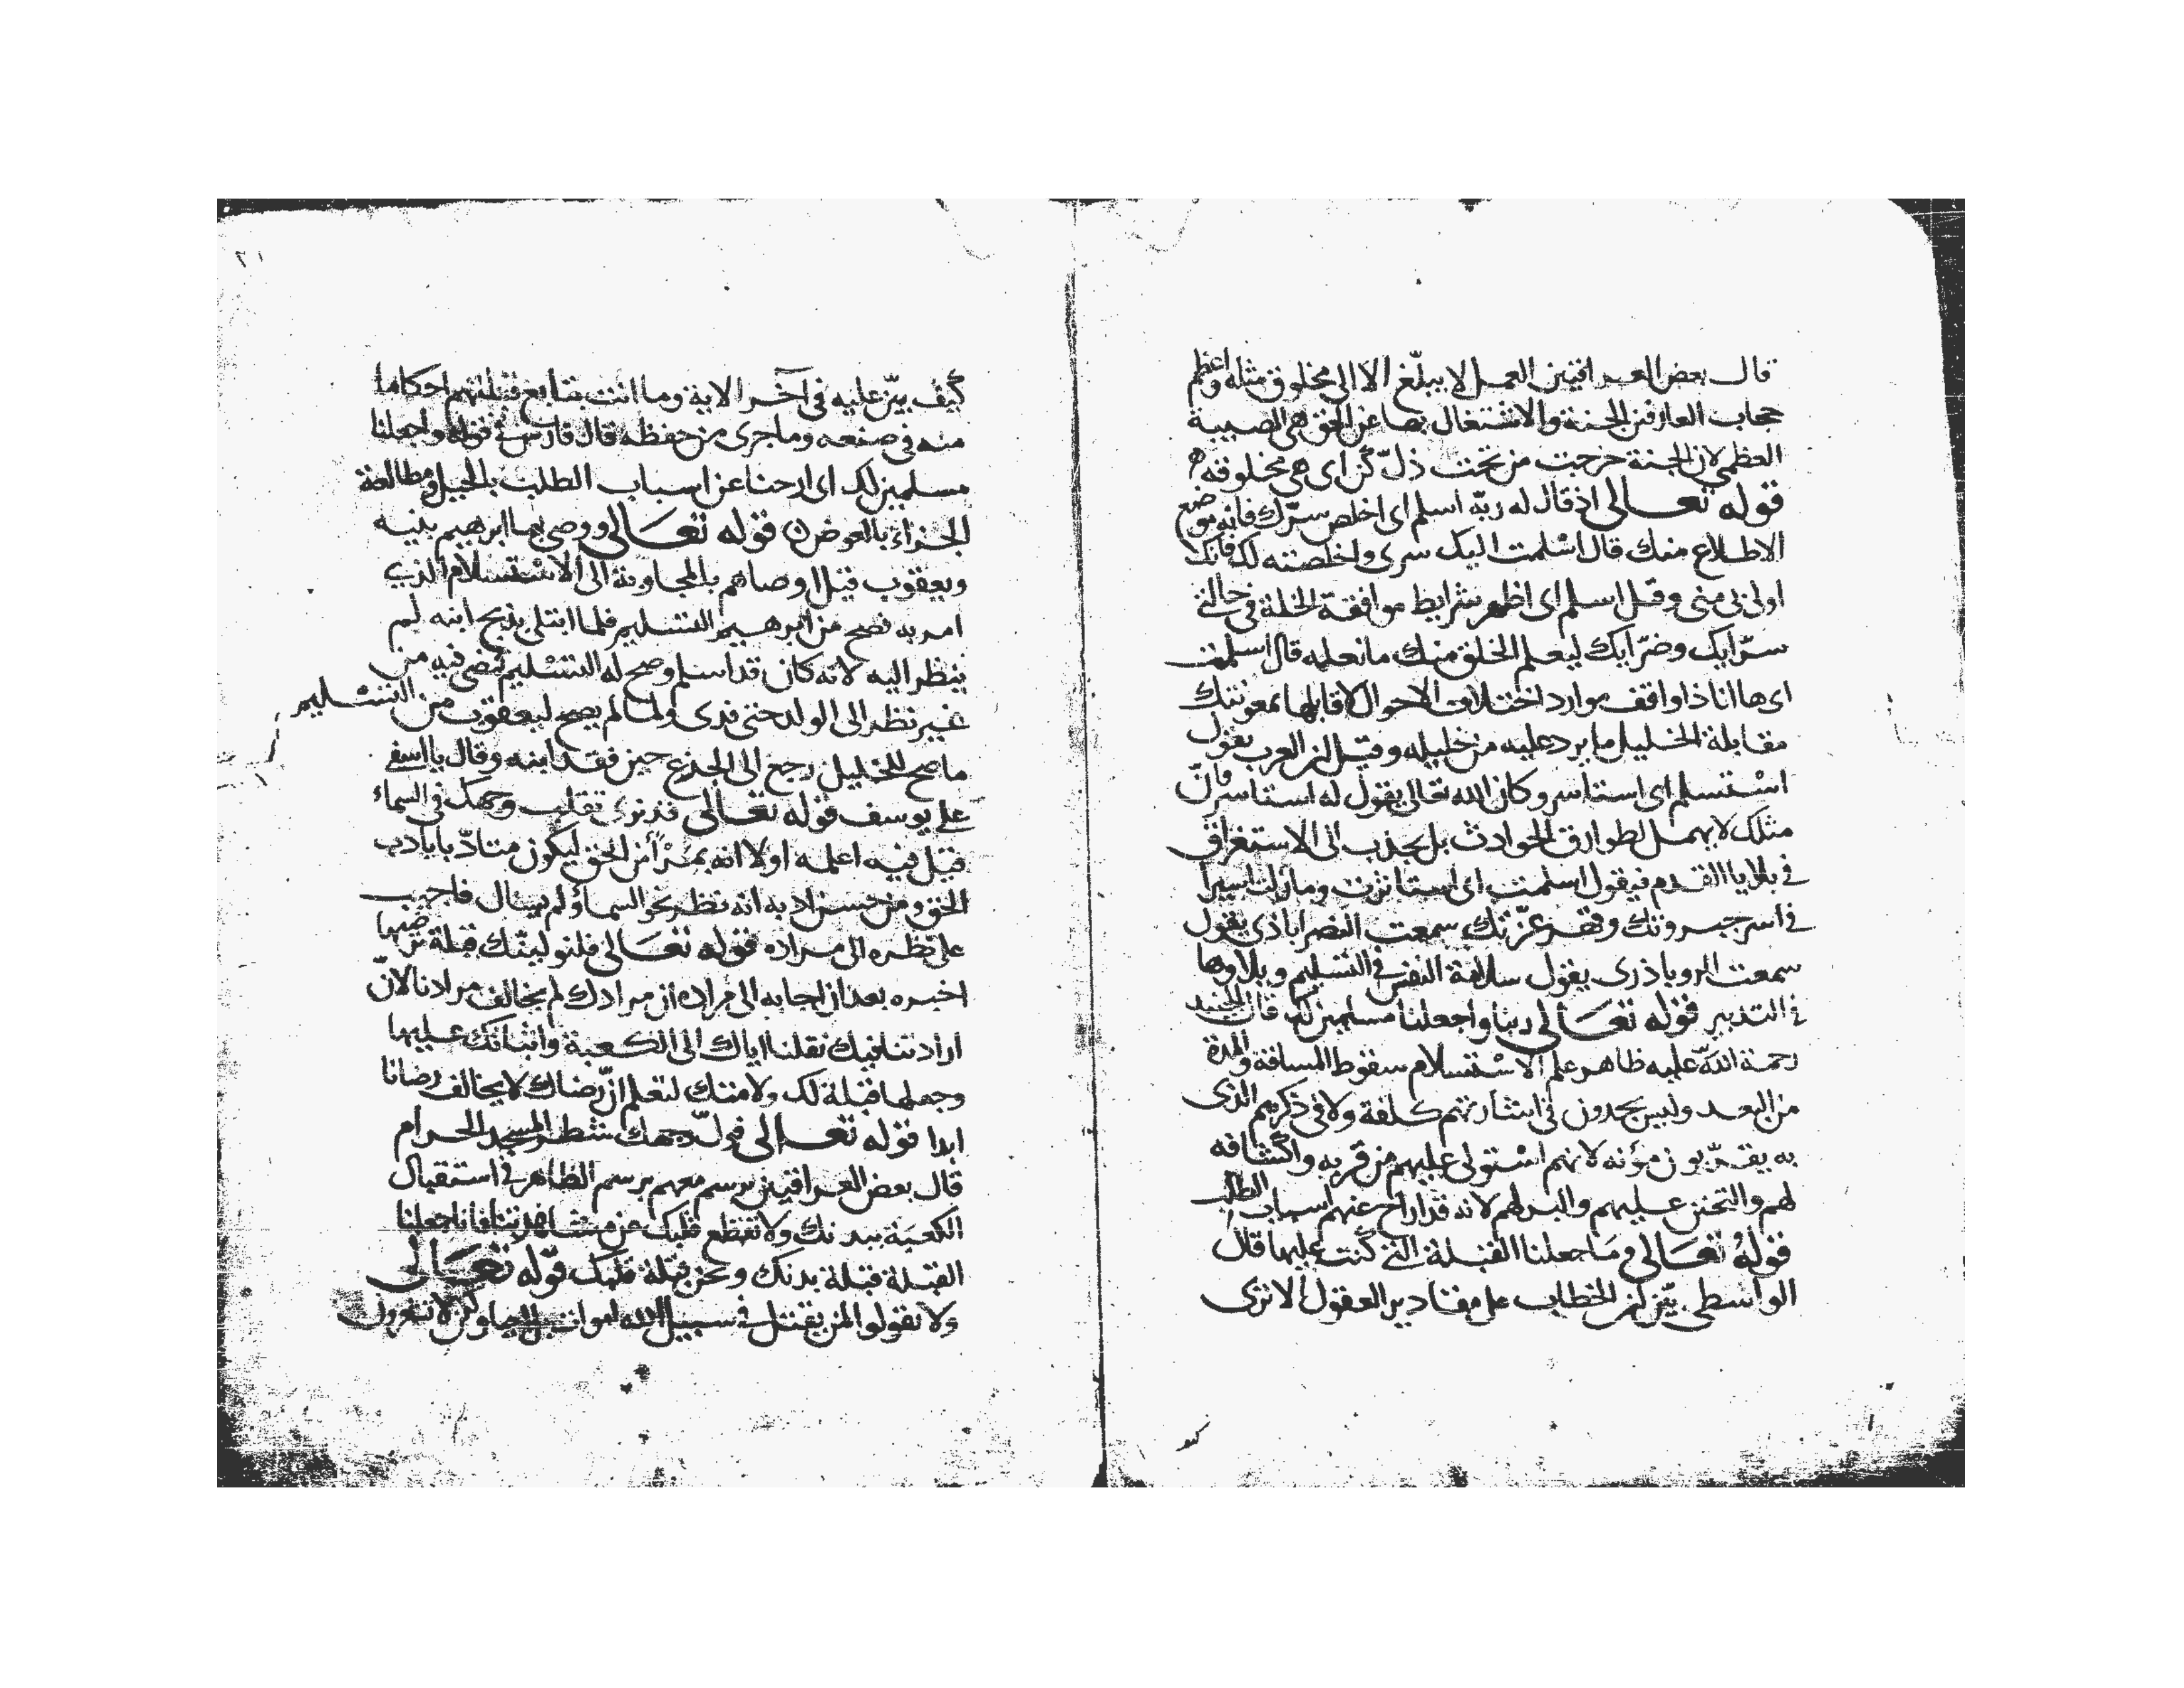 قال بعض العراقيين العمل لا يبلغ الا الى مخلوق مثله واعظم
حجاب العارفين الجنة والاشتغال بها عن الحق هى المصيبة
العظمى لان الجنة خرجت من تحت ذل كن اى هى مخلوقة
قوله تعالى اذ قال له ربه اسلم اى اخلص سرك فانه موضع
الاطلاع منك قال اسلمت اليك سرى واخلصته لك فانك
اولى بى منى وقيل اسلم اى اظهر شرايط موافقة الخلة فى حالتى
سرّايك وضرّايك ليعلم الخلق منك ما نعلمه قال اسلمت
اى ها انا ذا واقف موارد اختلاف الاحوال لاقابلها بمعونتك
مقابلة الخليل ما يرد عليه من خليله وقيل ان العرب يقول
استسلم اى استاسر وكان الله تعالى يقول له استاسر فانّ
مثلك لا يهمل لطوارق الحوادث بل يجذب الى الاستغراق
فى بلايا القدم فيقول اسلمت اى استاثرت وما زلت اسيرا
فى اسر جبروتك وقهر عزّتك سمعت النصراباذى يقول
سمعت الروباذرى يقول سلامة النفس فى التسليم وبلاوها
فى التدبير قوله تعالى ربنا واجعلنا مسلمين لك قال الجنيد
رحمة الله عليه ظاهر علم الاستسلام سقوط المسافة والمدة
من البعد وليس يجدون فى اشارتهم كلفة ولا فى ذكرهم الذى
به يقربون مؤنه لانهم استولى عليهم من قربه واكتشافه
لهم والتحنن عليهم والبر لهم لانه قد ازاح عنهم اسباب الطلب
قوله تعالى وما جعلنا القبلة التى كنت عليها قال
الواسطى بيّن ان الخطاب على مقادير العقول الا ترى
٢١
كيف بيّن عليه فى آخر الاية وما انت بتابع قبلتهم احكاما
منه فى صنعه وما جرى من حفظه قال فارس فى قوله واجعلنا
مسلمين لك اى ارحنا عن اسباب الطلب بالحيل ومطالعة
الجزاء بالعوض قوله تعالى ووصى بها ابرهيم بنيه
ويعقوب قيل اوصاهم بالمجاوبة الى الاستسلام الذى
امر به فصح من ابرهيم التسليم فلما ابتلى بذبح ابنه لم
ينظر اليه لانه كان قد اسلم وصح له التسليم فمضى فيه من
غير نظر الى الولد حتى فدى ولما لم يصح ليعقوب من التسليم
ما صح للخليل رجع الى الجزع حين فقد ابنه وقال يا اسفى
على يوسف قوله تعالى قد نرى تقلب وجهك فى السماء
قيل فيه اعلمه اولا انه بمرأى من الحق ليكون متادّبا باداب
الحق ومن حسن ادبه انه نظر نحو السماء ولم يسال فاجيب
على نظره الى مراده قوله تعالى فلنولينك قبلة ترضيها
اخبره بعد ان اجابه الى مراده ان مرادك لم يخالف مرادنا لانّ
ارادتنا فيك نقلنا اياك الى الكعبة واثباتك عليها
وجعلها قبلة لك ولامتك لتعلم انّ رضاك لا يخالف رضانا
ابدا قوله تعالى فولّ وجهك شطر المسجد الحرام
قال بعض العراقيين برسم معهم برسم الظاهر فى استقبال
الكعبة ببدنك ولا تقطع قلبك عن مشاهدتنا فانا جعلنا
القبلة قبلة بدنك ونحن قبلة قلبك قوله تعالى
ولا تقولوا لمن يقتل فى سبيل الله اموات بل احياء ولكن لا تشعرون